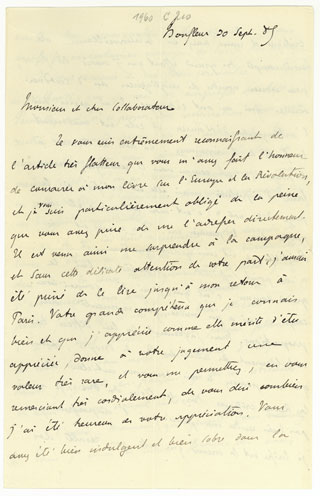 1960 C 210
Honfleur 20 Sept. 85
Monsieur et cher collaborateur
Je vous suis extrêmement reconnaissant de
l'article très flatteur que vous m'avez fait l'honneur
de consacrer à mon livre sur l'Europe et la Révolution,
et je vous suis particulièrement obligé de la peine
que vous avez prise de me l'adresser directement.
Il est venu ainsi me surprendre à la campagne,
et sans cette délicate attention de votre part, j'aurais
été privé de le lire jusqu'à mon retour à
Paris. Votre grande compétence que je connais
bien et que j'apprécie comme elle mérite d'être
appréciée, donne à votre jugement une
valeur très rare, et vous me permettrez, en vous
remerciant très cordialement, de vous dire combien
j'ai été heureux de votre appréciation. Vous
avez été bien indulgent et bien sobre dans la